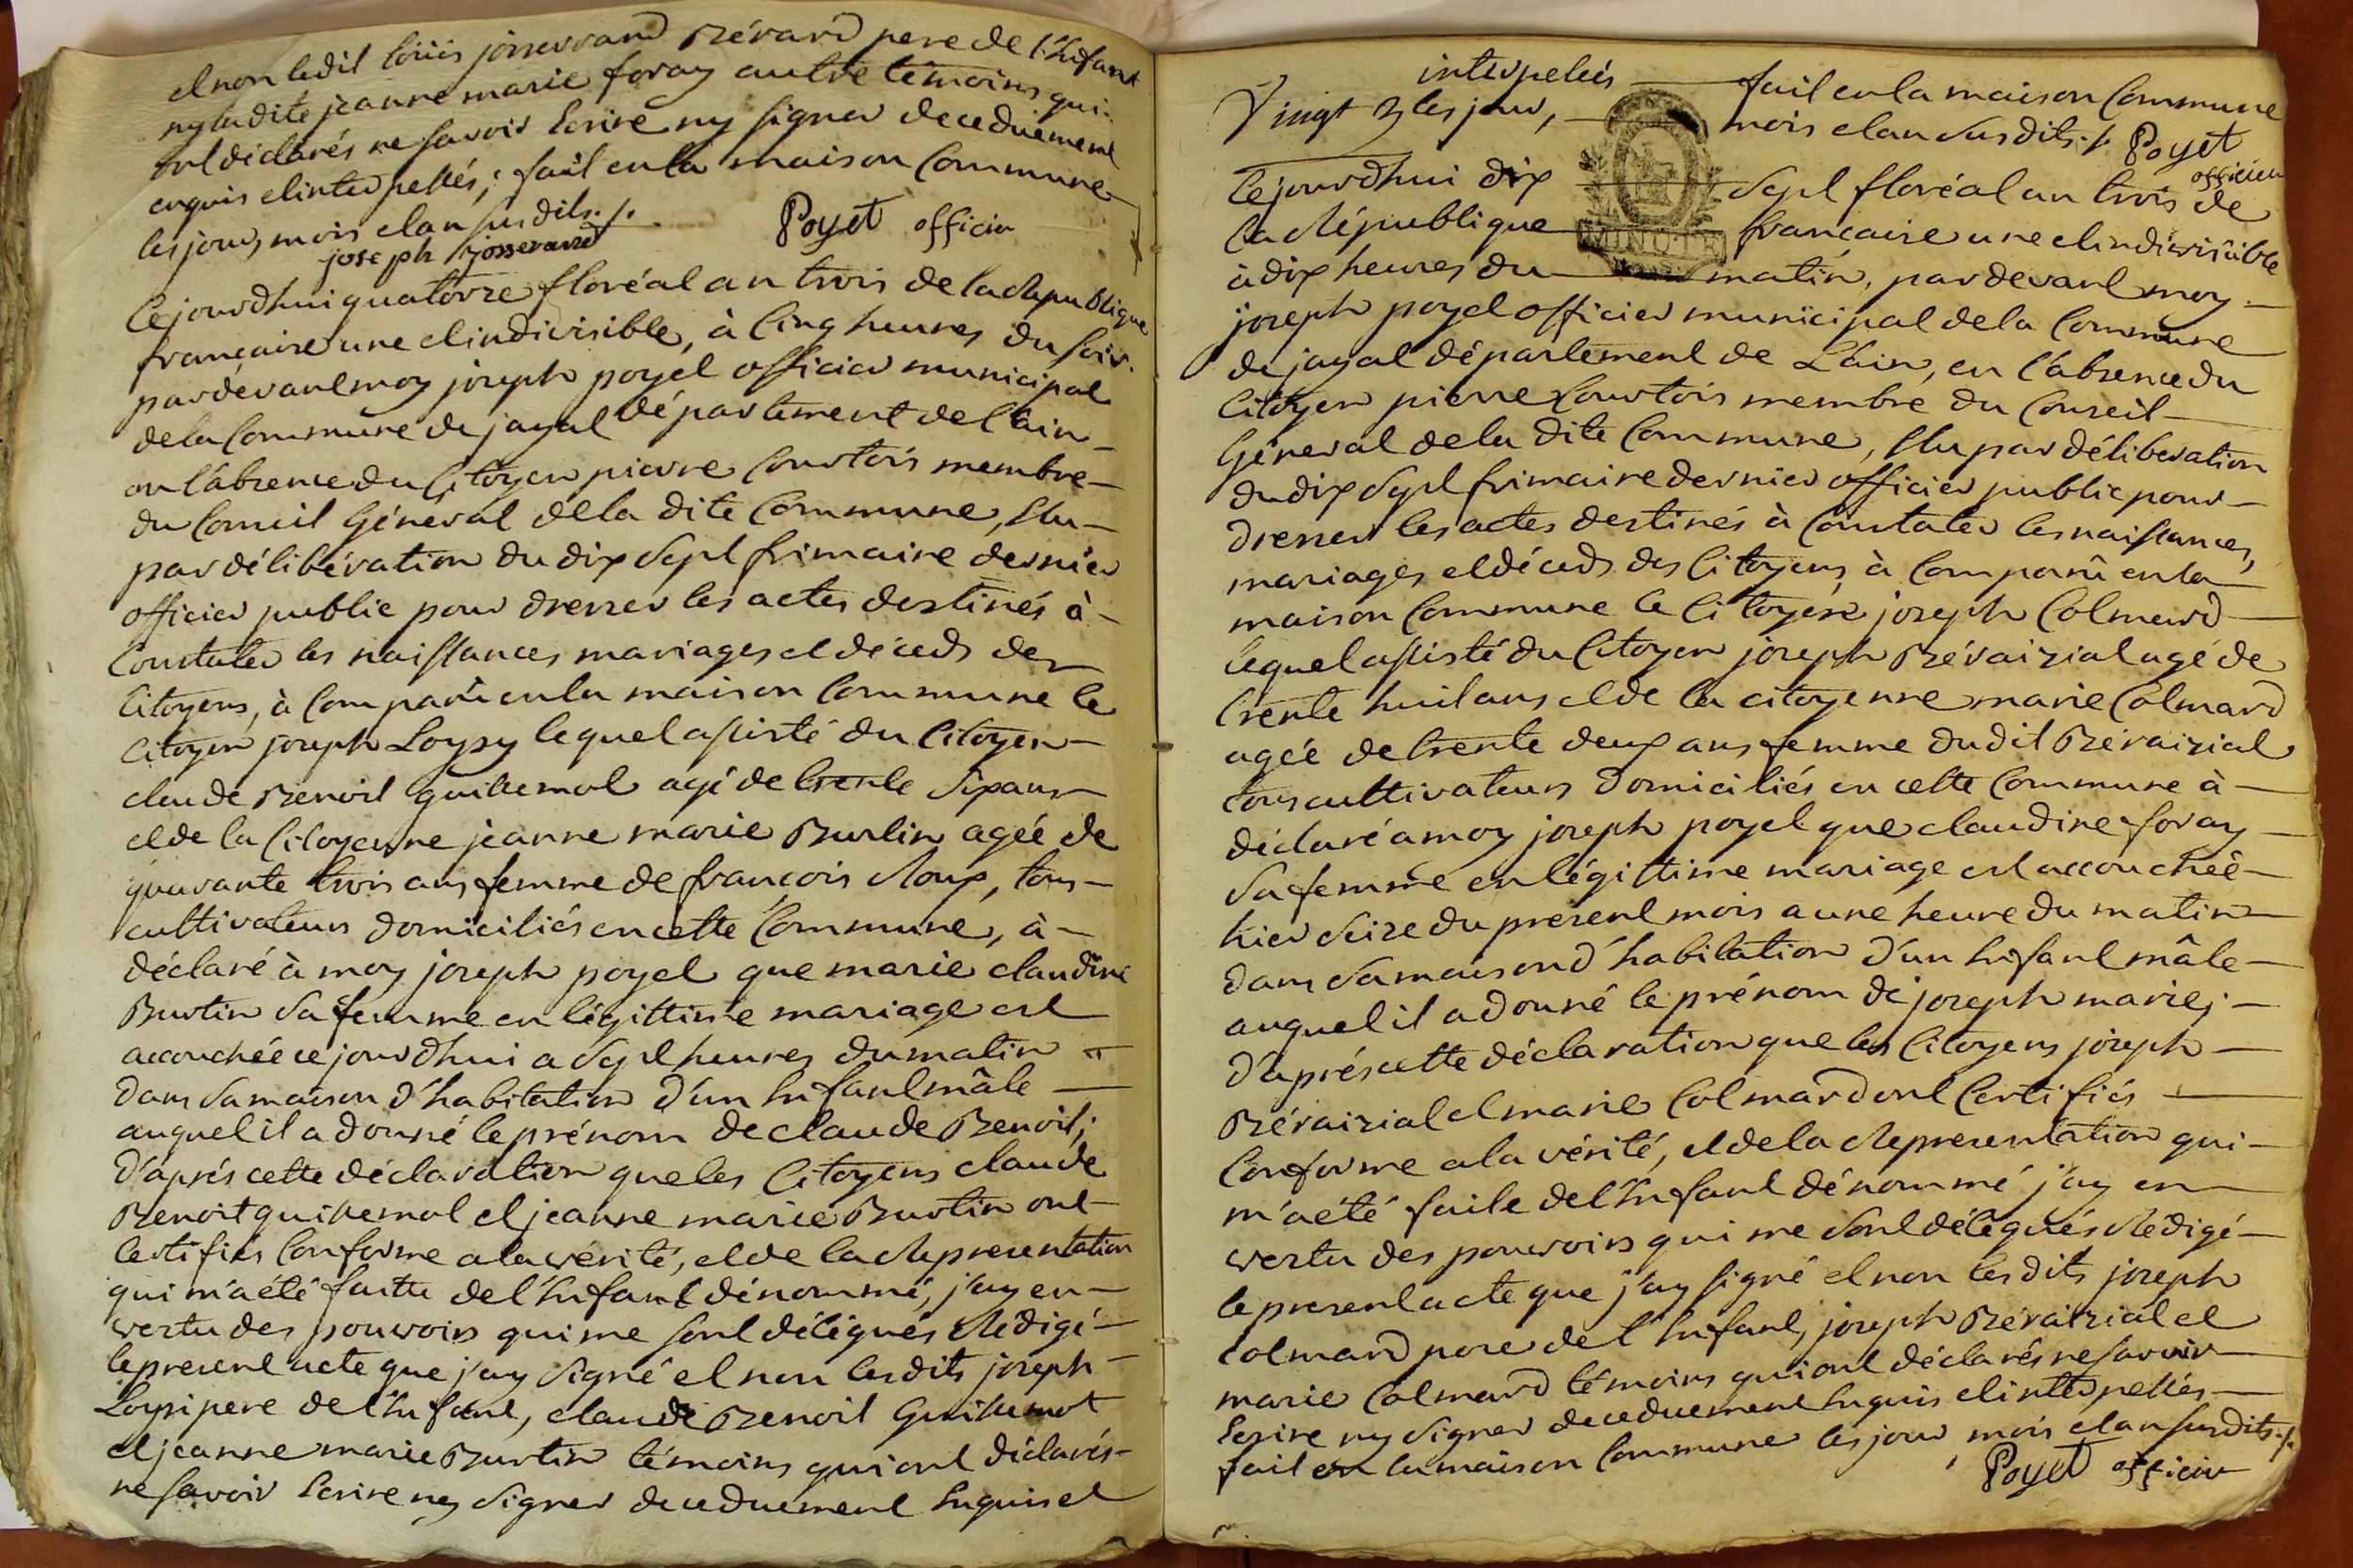 et non ledit loüis josserrand Bérard pere de l'Enfant
ny ladite jeanne marie foray autre témoins qui
ont déclarés ne savoir Ecrire ny signer de ce duement
enquis et interpellés; fait en la maison Commune
les jour, mois et an susdits ./.
joseph josserand Poyet officier
Cejourdhui quatorze floréal an trois de la République
francaise une et indivisible, à cinq heures du soir
pardevant moy joseph poyet officier municipal
de la Commune de jayat département de l'ain
en l'absence du Citoyen pierre Courtois membre
du Conseil Géneral de la dite Commune, Elu
par délibération du dix sept frimaire dernier
officier public pour dresser les actes destinés à
Constater les naissances mariages et déceds des
Citoyens, à Comparû en la maison Commune le
Citoyen joseph Loysy lequel assisté du Citoyen
claude Benoit guillemot agé de trente six ans
et de la Citoyenne jeanne marie Burtin agée de
quarante trois ans femme de francois Roux, tous
cultivateurs domiciliés en cette Commune, à
déclaré à moy joseph poyet que marie claudine
Burtin sa femme en légittime mariage est
accouchée ce jourdhui a sept heures du matin
dans sa maison d'habitation d'un Enfant mâle
auquel il a donné le prénom de claude Benoit;
d'aprés cette déclaration que les Citoyens claude
Benoit guillemot et jeanne marie Burtin ont
Certifiés Conforme a la vérité, et de la Representation
qui m'a été faitte de l'Enfant dénommé, j'ay en
vertu des pouvoirs qui me sont délégués Rédigé
le present acte que j'ay signé et non lesdits joseph
Loysi pere de l'Enfant, claude Benoit Guillemot
et jeanne marie Burtin témoins qui ont déclarés
ne savoir Ecrire ny signer de ce duement Enquis et
interpelés fait en la maison Commune
les jour, mois et an susdits ./. Poyet
officier
Cejourdhui dix sept floréal an trois de
la République francaise une et indivisible
à dix heures du matin, pardevant moy
MINUTE
joseph poyet officier municipal de la Commune
de jayat département de L'ain, en l'absence du
Citoyen pierre Courtois membre du Conseil
Géneral de la dite Commune, Elu par délibération
du dix sept frimaire dernier officier public pour
dresser les actes destinés à Constater les naissances,
mariages et déceds des Citoyens à Comparû en la
maison Commune le Citoyen joseph Colmard
lequel assisté du Citoyen joseph Bévairial agé de
trente huit ans et de la citoyenne marie Colmard
agée de trente deux ans femme dudit Bévairial
tous cultivateurs domiciliés en cette Commune à
déclaré a moy joseph poyet que claudine foray
sa femme en légittime mariage est accouchée
hier seize du present mois a une heure du matin
dans sa maison d'habitation d'un Enfant mâle
auquel il a donné le prénom de joseph marie;
d'aprés cette déclaration que les Citoyens joseph
Bévairial et marie Colmard ont Certifiés
Conforme a la vérité, et de la Representation qui
m'a été faite de l'Enfant dénommé j'ay en
vertu des pouvoirs qui me sont délégués Rédigé
le present acte que j'ay signé et non lesdits joseph
Colmard pere de l'Enfant, joseph Bévairial et
marie Colmard témoins qui ont déclarés ne savoir
Ecrire ny signer de ce duement Enquis et interpellés
fait en la maison Commune les jour, mois et an susdits ./.
Poyet officier